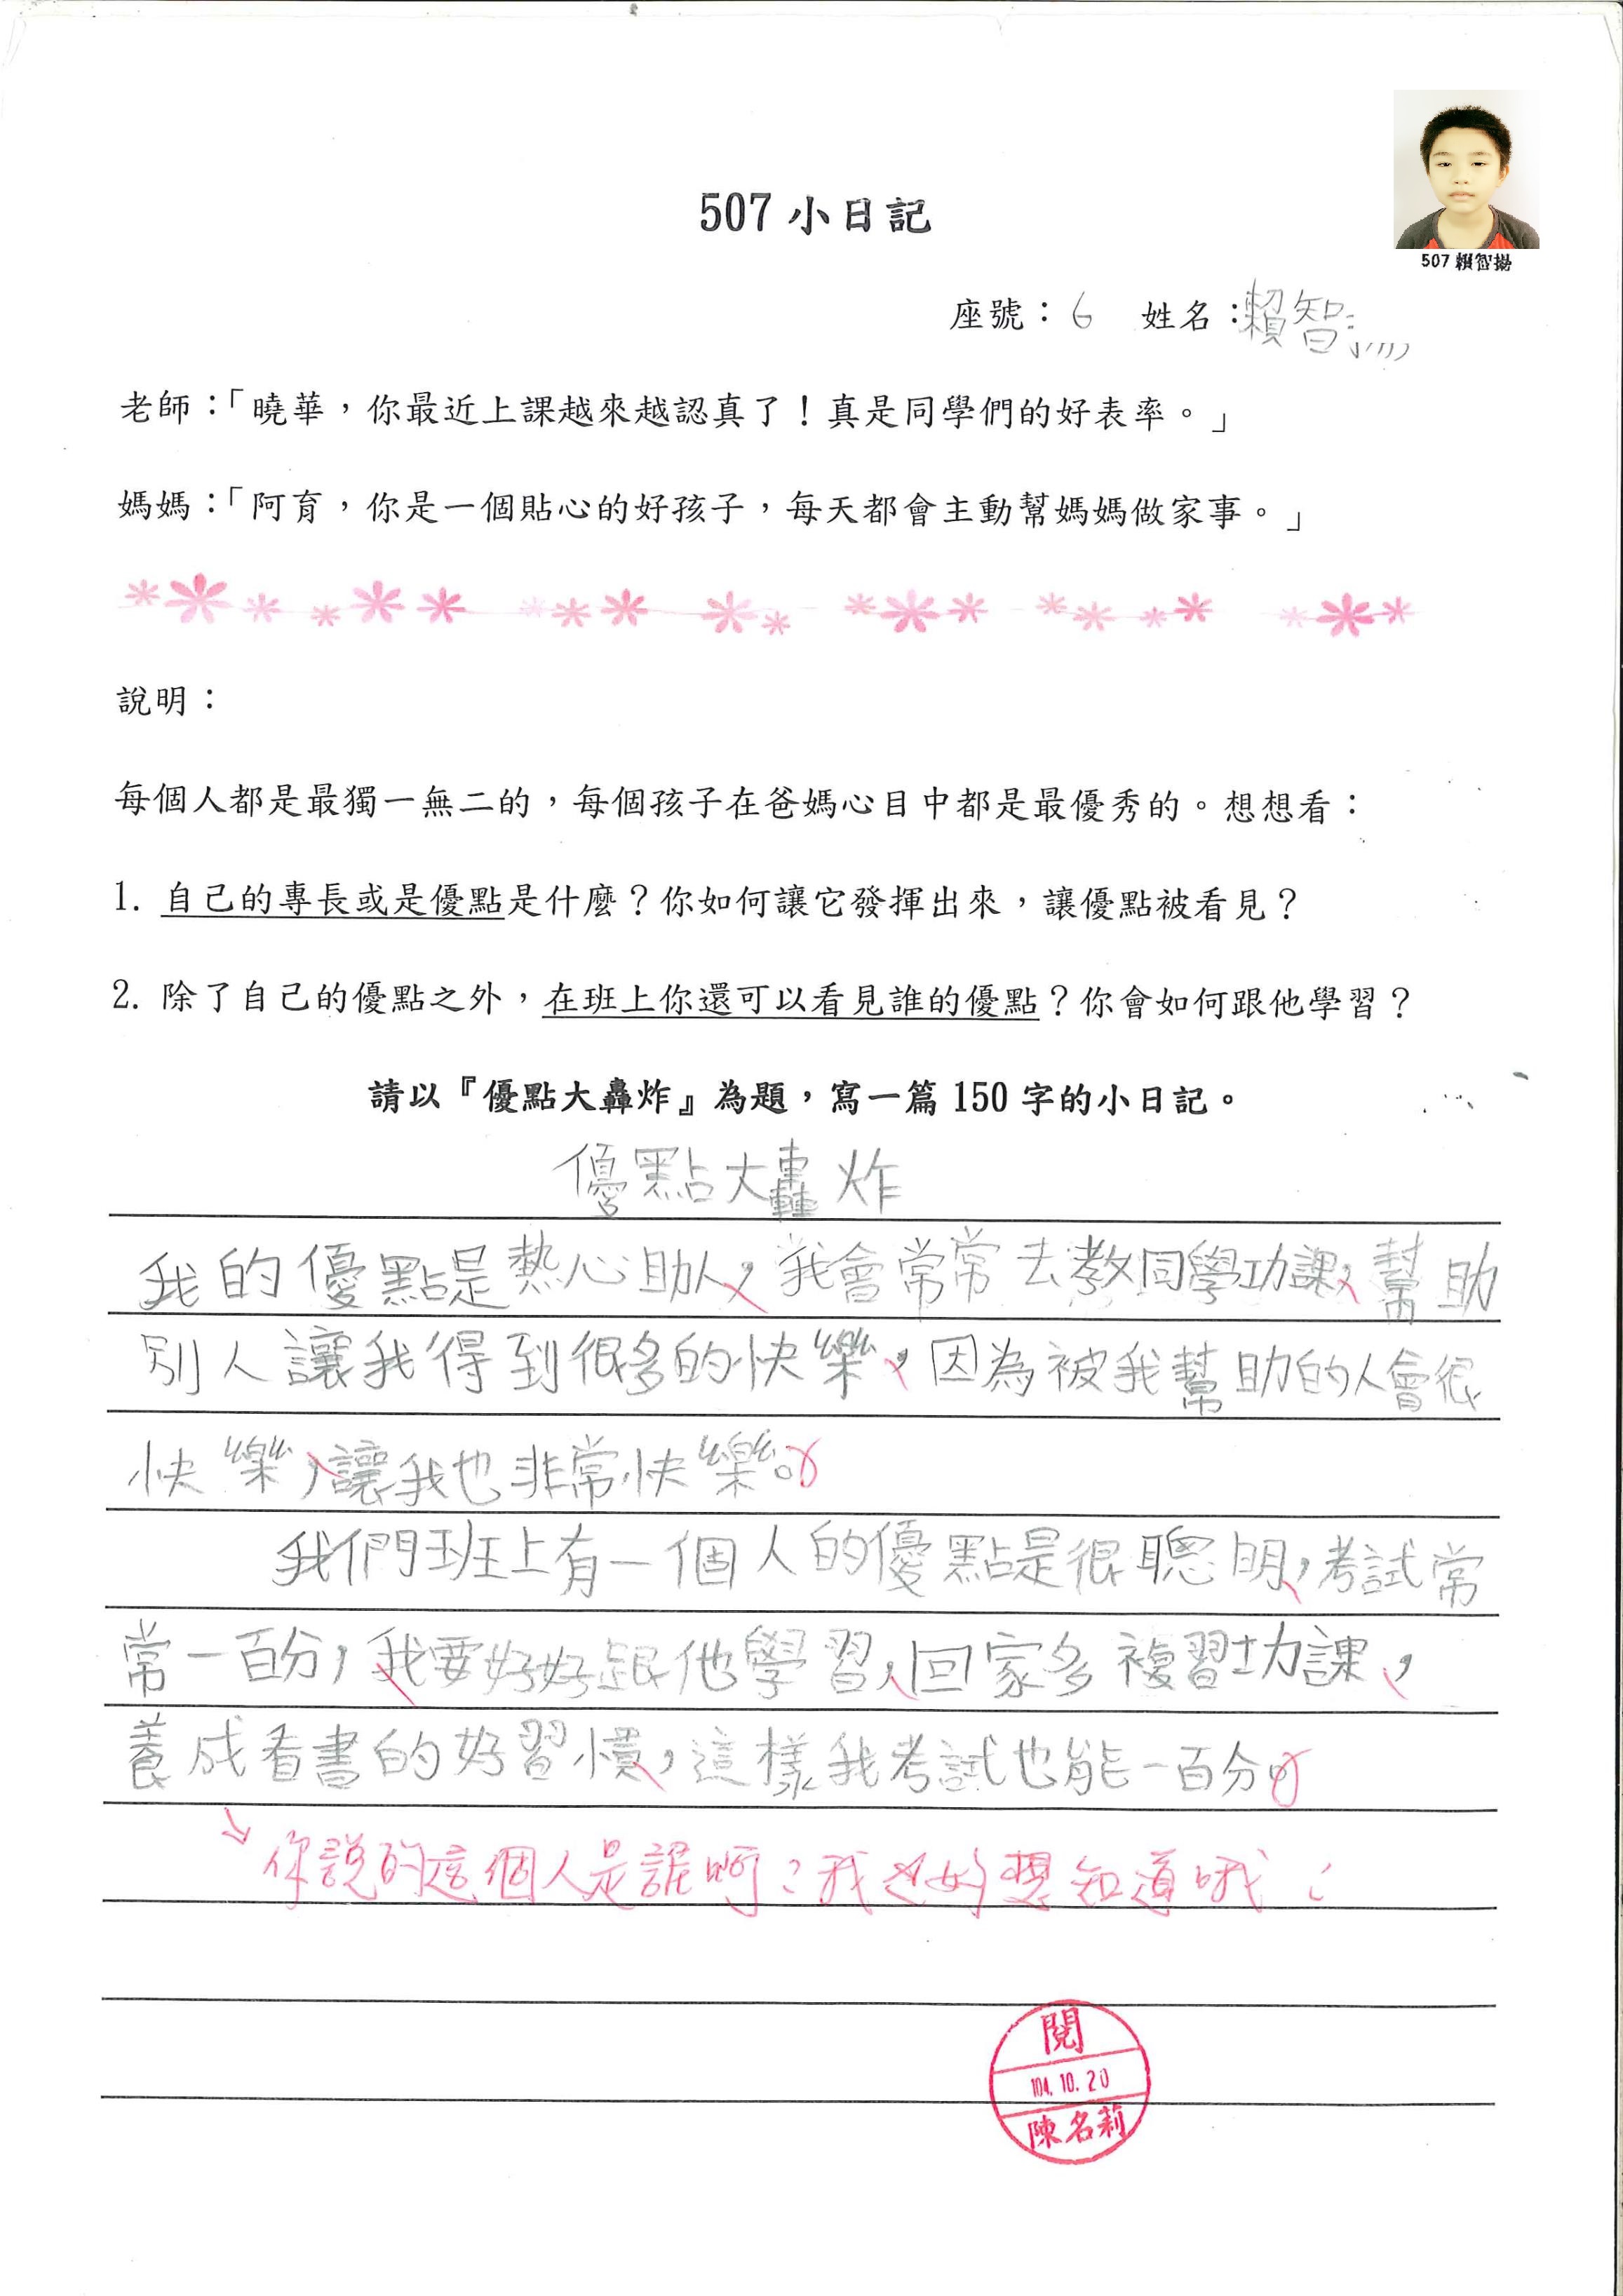 507 小日記
507 賴智揚
座號：6 姓名：賴智
老師：「曉華，你最近上課越來越認真了！真是同學們的好表率。」
媽媽：「阿育，你是一個貼心的好孩子，每天都會主動幫媽媽做家事。」
說明：
每個人都是最獨一無二的，每個孩子在爸媽心目中都是最優秀的。想想看：
1. 自己的專長或是優點是什麼？你如何讓它發揮出來，讓優點被看見？
2. 除了自己的優點之外，在班上你還可以看見誰的優點？你會如何跟他學習？
請以『優點大轟炸』為題，寫一篇 150 字的小日記。
優點大轟炸
我的優點是熱心助人，我會常常去教同學功課，幫助
別人讓我得到很多的快樂，因為被我幫助的人會很
快樂，讓我也非常快樂。
我們班上有一個人的優點是很聰明，考試常
常一百分，我要好好跟他學習，回家多複習功課，
養成看書的好習慣，這樣我考試也能一百分。
你說的這個人是誰啊？我也好想知道哦！
閱
104.10.20
陳名莉